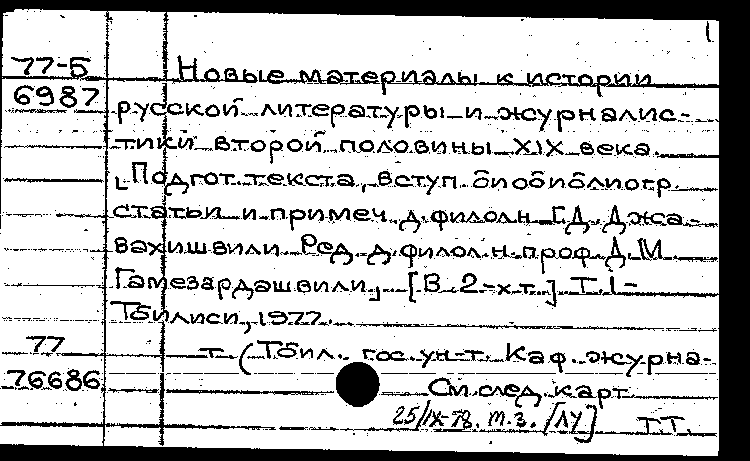 1
77-Б Новые материалы к истории
6987 русской литературы и журналис-
тики второй половины XIX века.
[Подгот. текста, вступ. биобиблиогр.
статьи и примеч. д. филол. н. Г.Д. Джа-
вахишвили. Ред. д. филол. н. проф. Д.М.
Гамезардашвили], [В 2-х т.] Т. 1-
Тбилиси, 1977.
77 т. (Тбил. гос. ун-т. Каф. журна-
76686 См. след. карт.
25/IX-78. т.з. [ЛУ] Т.Т.